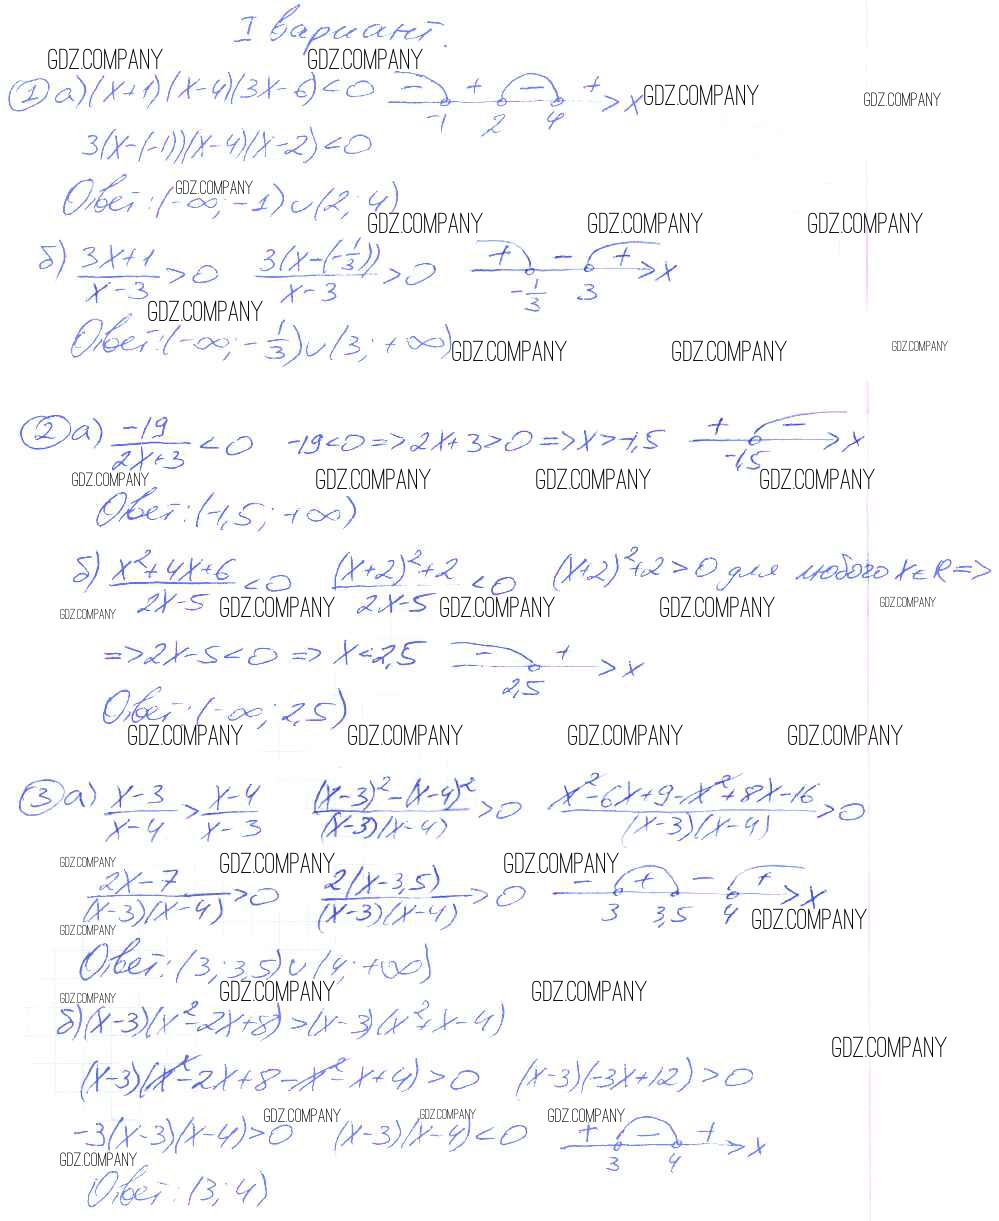 I вариант.
GDZ.COMPANY GDZ.COMPANY
① а) (x+1)(x-4)(3x-6)<0 - + - + x GDZ.COMPANY GDZ.COMPANY
-1 2 4
3(x-(-1))(x-4)(x-2)<0
GDZ.COMPANY
Ответ: (-∞; -1)∪(2; 4)
GDZ.COMPANY GDZ.COMPANY GDZ.COMPANY
б) (3x+1)/(x-3)>0 3(x-(-1/3))/(x-3)>0 + - + x
-1/3 3
GDZ.COMPANY
Ответ: (-∞; -1/3)∪(3; +∞)
GDZ.COMPANY GDZ.COMPANY GDZ.COMPANY
② а) -19/(2x+3)<0 -19<0 => 2x+3>0 => x>-1,5 + - x
-1,5
GDZ.COMPANY GDZ.COMPANY GDZ.COMPANY GDZ.COMPANY
Ответ: (-1,5; +∞)
б) (x²+4x+6)/(2x-5)<0 ((x+2)²+2)/(2x-5)<0 (x+2)²+2>0 для любого x∈R =>
GDZ.COMPANY GDZ.COMPANY GDZ.COMPANY GDZ.COMPANY GDZ.COMPANY
=> 2x-5<0 => x<2,5 - + x
2,5
Ответ: (-∞; 2,5)
GDZ.COMPANY GDZ.COMPANY GDZ.COMPANY GDZ.COMPANY
③ а) (x-3)/(x-4)>(x-4)/(x-3) ((x-3)²-(x-4)²)/((x-3)(x-4))>0 (x²-6x+9-x²+8x-16)/((x-3)(x-4))>0
GDZ.COMPANY GDZ.COMPANY GDZ.COMPANY
(2x-7)/((x-3)(x-4))>0 2(x-3,5)/((x-3)(x-4))>0 - + - + x
3 3,5 4
GDZ.COMPANY
GDZ.COMPANY
Ответ: (3; 3,5)∪(4; +∞)
GDZ.COMPANY GDZ.COMPANY GDZ.COMPANY
б) (x-3)(x²-2x+8)>(x-3)(x²+x-4)
GDZ.COMPANY
(x-3)(x²-2x+8-x²-x+4)>0 (x-3)(-3x+12)>0
GDZ.COMPANY GDZ.COMPANY GDZ.COMPANY
-3(x-3)(x-4)>0 (x-3)(x-4)<0 + - + x
3 4
GDZ.COMPANY
Ответ: (3; 4)